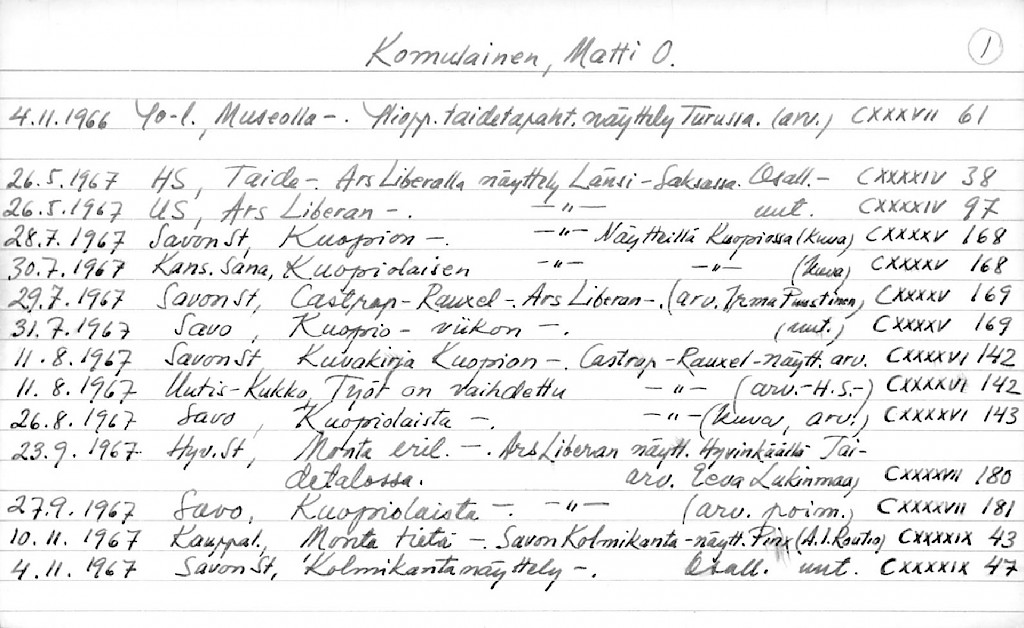 Komulainen, Matti O. 1
4.11.1966 Yo-l., Museolla -. Yliopp. taidetapaht. näyttely Turussa. (arv.) CXXXVII 61
26.5.1967 HS, Taide -. Ars Liberalla näyttely Länsi-Saksassa. Osall. - CXXXXIV 38
26.5.1967 US, Ars Liberan -. -"- uut. CXXXXIV 97
28.7.1967 Savon St, Kuopion -. -"- Näytteillä Kuopiossa (kuva) CXXXXV 168
30.7.1967 Kans. Sana, Kuopiolaisen -"- -"- (kuva) CXXXXV 168
29.7.1967 Savon St, Castrop-Rauxel -. Ars Liberan -. (arv. Irma Puustinen) CXXXXV 169
31.7.1967 Savo, Kuopio-viikon -. (uut.) CXXXXV 169
11.8.1967 Savon St Kuvakirja Kuopion -. Castrop-Rauxel-näytt. arv. CXXXXVI 142
11.8.1967 Uutis-Kukko, Työt on vaihdettu -"- (arv. -H.S.-) CXXXXVI 142
26.8.1967 Savo, Kuopiolaista -. -"- (kuva, arv.) CXXXXVI 143
23.9.1967 Hyv. St, Monta eril. -. Ars Liberan näytt. Hyvinkäällä Tai-
detalossa. arv. Eeva Lukinmaa) CXXXXVII 180
27.9.1967 Savo, Kuopiolaista -. -"- (arv. poim.) CXXXXVII 181
10.11.1967 Kauppal., Monta tietä -. Savon Kolmikanta-näytt. Pinx (A.I. Routio) CXXXXIX 43
4.11.1967 Savon St, Kolmikantanäyttely -. Osall. uut. CXXXXIX 47